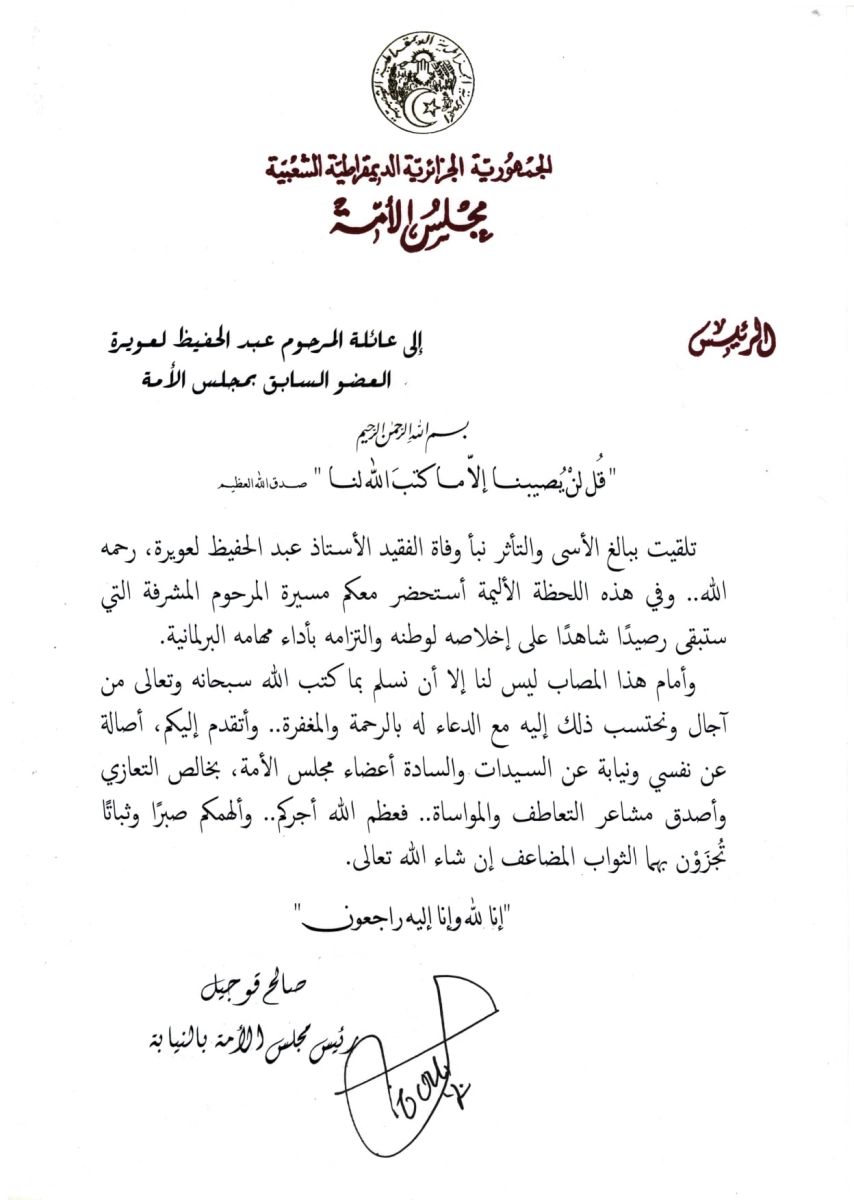 الجمهورية الجزائرية الديمقراطية الشعبية
الجمهورية الجزائرية الديمقراطية الشعبية
مجلس الأمة
الرئيس
إلى عائلة المرحوم عبد الحفيظ لعويرة
العضو السابق بمجلس الأمة
بسم الله الرحمن الرحيم
"قُل لنْ يُصيبنا إلاّ ما كتبَ الله لنا" صدق الله العظيم
تلقيت ببالغ الأسى والتأثر نبأ وفاة الفقيد الأستاذ عبد الحفيظ لعويرة، رحمه
الله.. وفي هذه اللحظة الأليمة أستحضر معكم مسيرة المرحوم المشرفة التي
ستبقى رصيدًا شاهدًا على إخلاصه لوطنه والتزامه بأداء مهامه البرلمانية.
وأمام هذا المصاب ليس لنا إلا أن نسلم بما كتب الله سبحانه وتعالى من
آجال ونحتسب ذلك إليه مع الدعاء له بالرحمة والمغفرة.. وأتقدم إليكم، أصالة
عن نفسي ونيابة عن السيدات والسادة أعضاء مجلس الأمة، بخالص التعازي
وأصدق مشاعر التعاطف والمواساة.. فعظم الله أجركم.. وألهمكم صبرًا وثباتًا
تُجزَوْن بهما الثواب المضاعف إن شاء الله تعالى.
"إنا لله وإنا إليه راجعون"
صالح قوجيل
رئيس مجلس الأمة بالنيابة